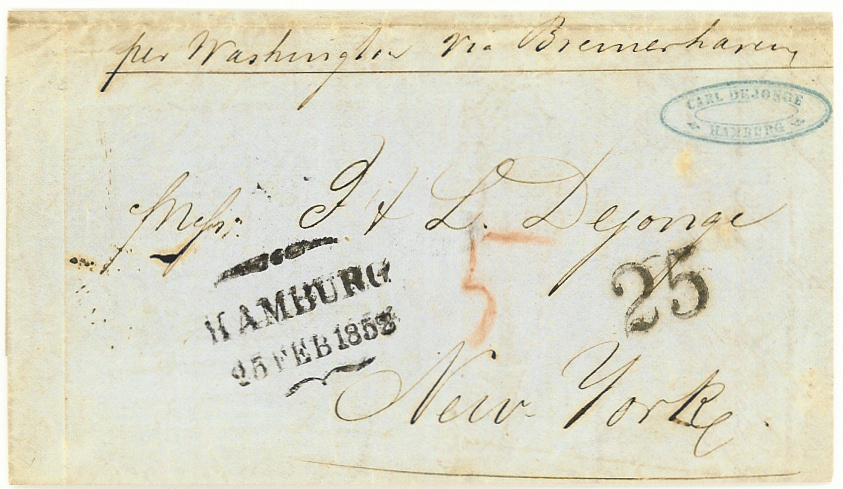 per Washington via Bremerhaven
CARL DEJONGE
HAMBURG
Messrs. J & L. Dejonge
HAMBURG
25 FEB 1853
5
25
New York